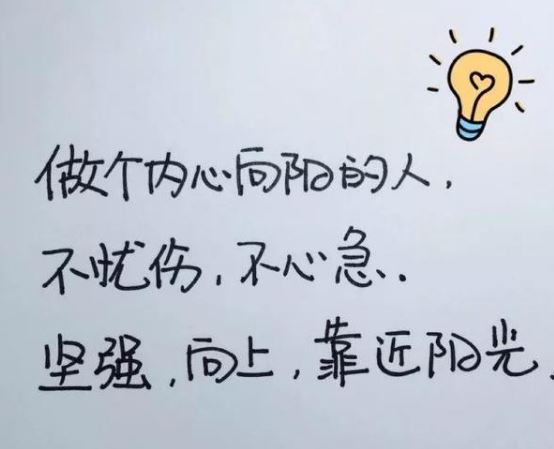 做个内心向阳的人，
不忧伤，不心急.
坚强，向上，靠近阳光.